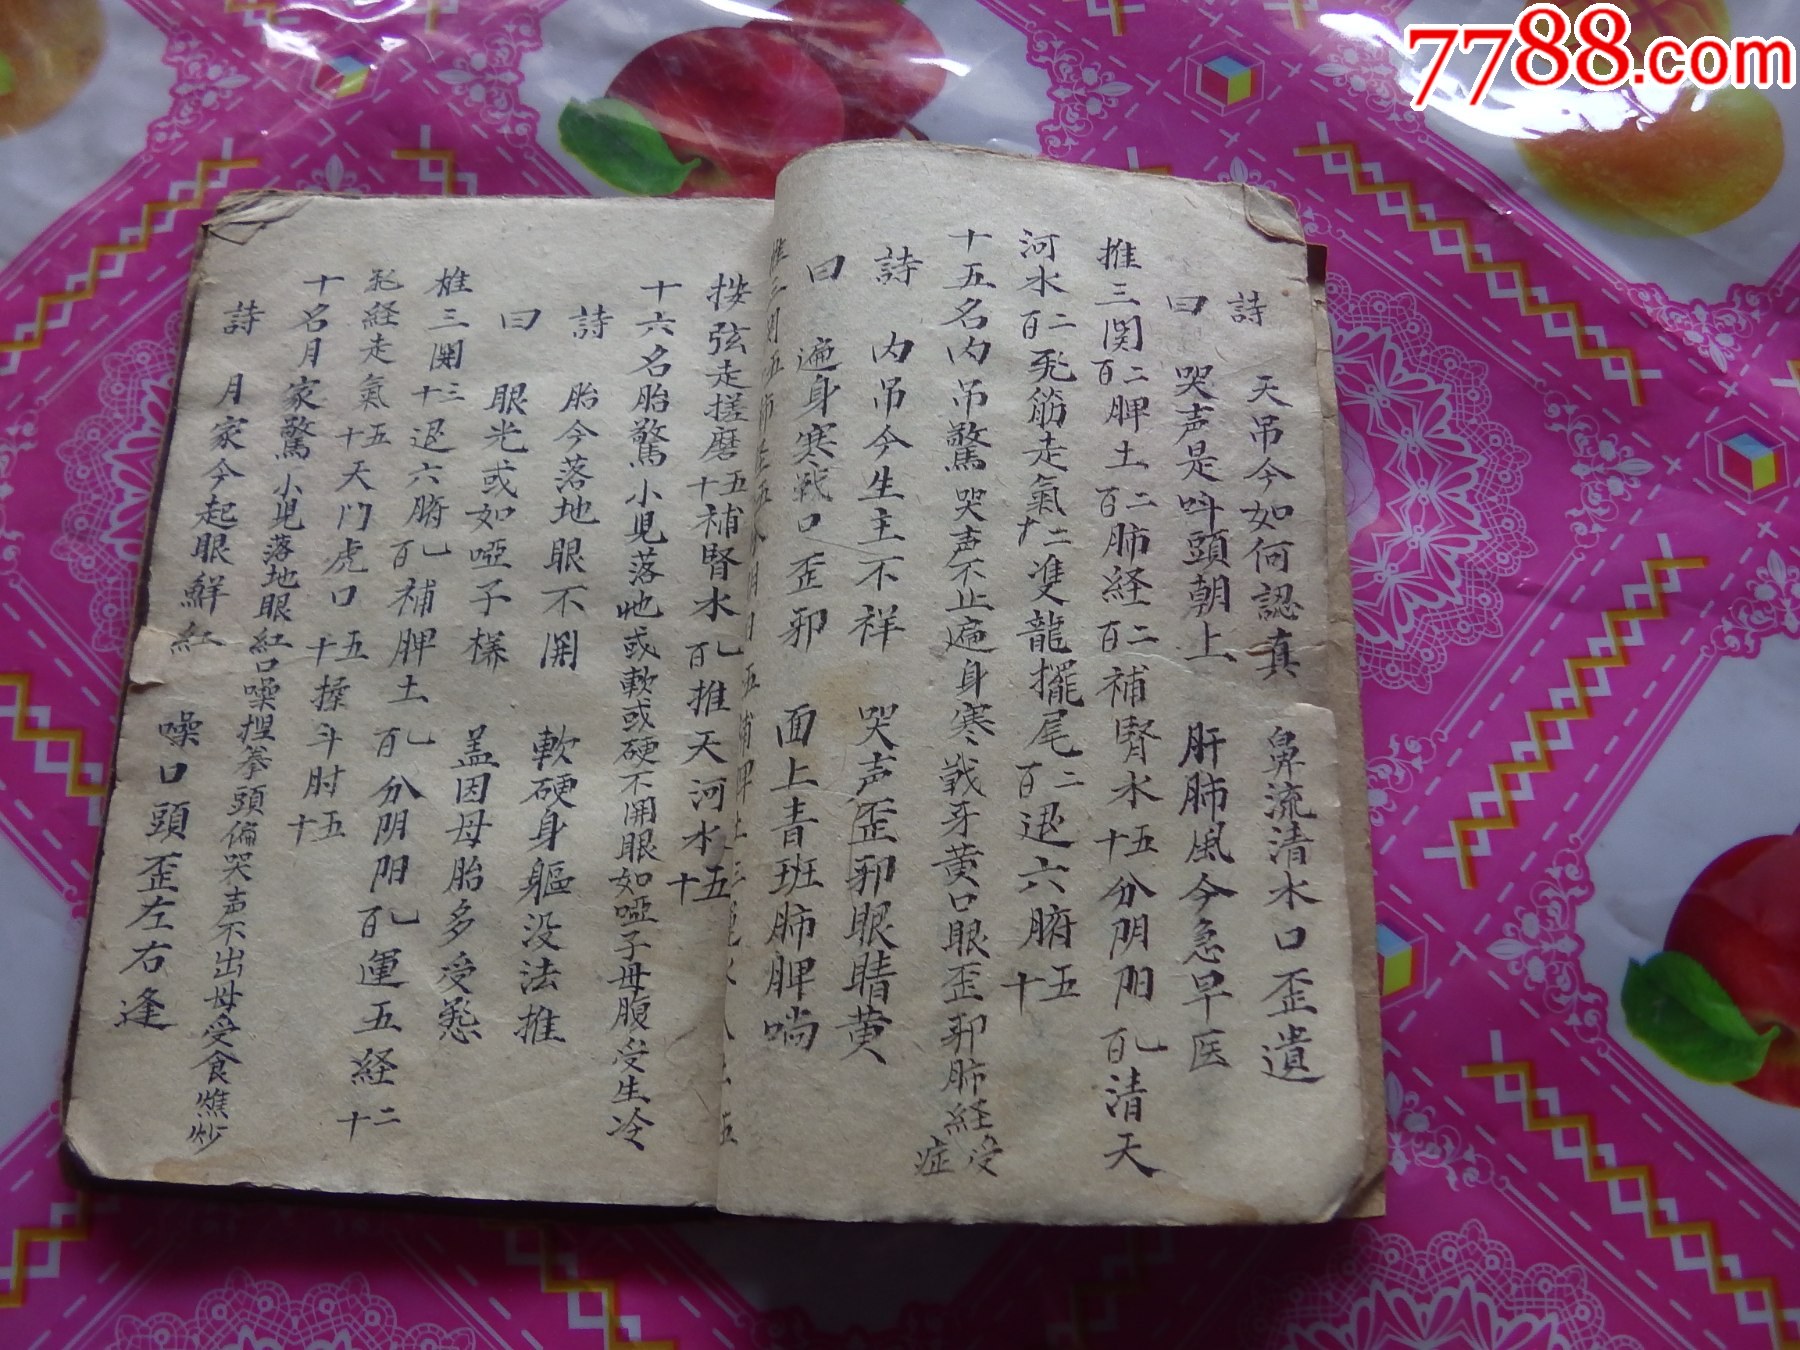 7788.com
詩 天吊今如何認真 鼻流清水口歪遺
曰 哭声是呌頭朝上 肝肺風今急早医
推三関百二脾土百二肺経百二補腎水十五分阴阳百清天
河水百二飛筋走氣十二雙龍擺尾百二退六腑十五
十五名内吊驚哭声不止遍身寒戦牙黄口眼歪邪肺経受症
詩 内吊今生主不祥 哭声歪邪眼睛黄
曰 遍身寒戦口歪邪 面上青班肺脾喘
推三関五
按弦走搓磨十五補腎水百推天河水十五
十六名胎驚小児落地或軟或硬不開眼如啞子母腹受生冷
詩 胎今落地眼不開 軟硬身軀没法推
曰 眼光或如啞子樣 盖因母胎多受愁
推三関十三退六腑百補脾土百分阴阳百運五経十二
飛経走氣十五天门虎口十五揉斗肘十五
十名月家驚小児落地眼紅口噪捏拳頭偏哭声不出母受食燋炒
詩 月家今起眼鮮紅 噪口頭歪左右逢